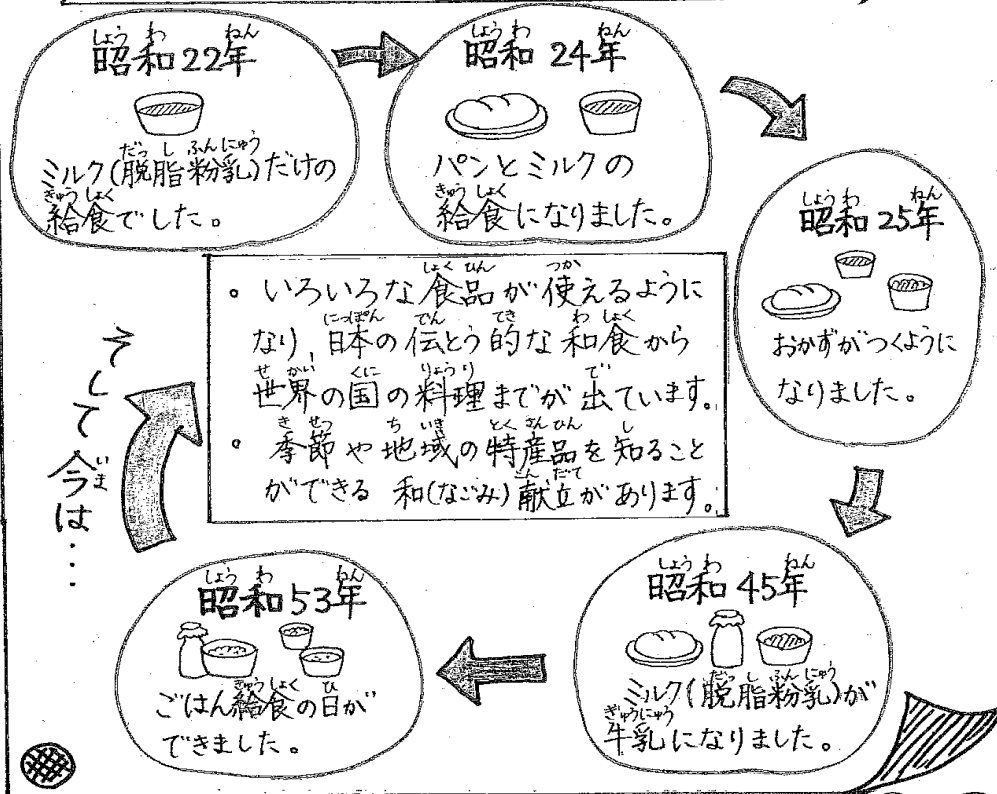 昭和22年
ミルク(脱脂粉乳)だけの
給食でした。
昭和 24年
パンとミルクの
給食になりました。
昭和 25年
おかずがつくように
なりました。
昭和 45年
ミルク(脱脂粉乳)が
牛乳になりました。
昭和53年
ごはん給食の日が
できました。
そして今は・・・
・ いろいろな食品が使えるように
なり、日本の伝とう的な和食から
世界の国の料理までが出ています。
・ 季節や地域の特産品を知ること
ができる 和(なごみ)献立があります。